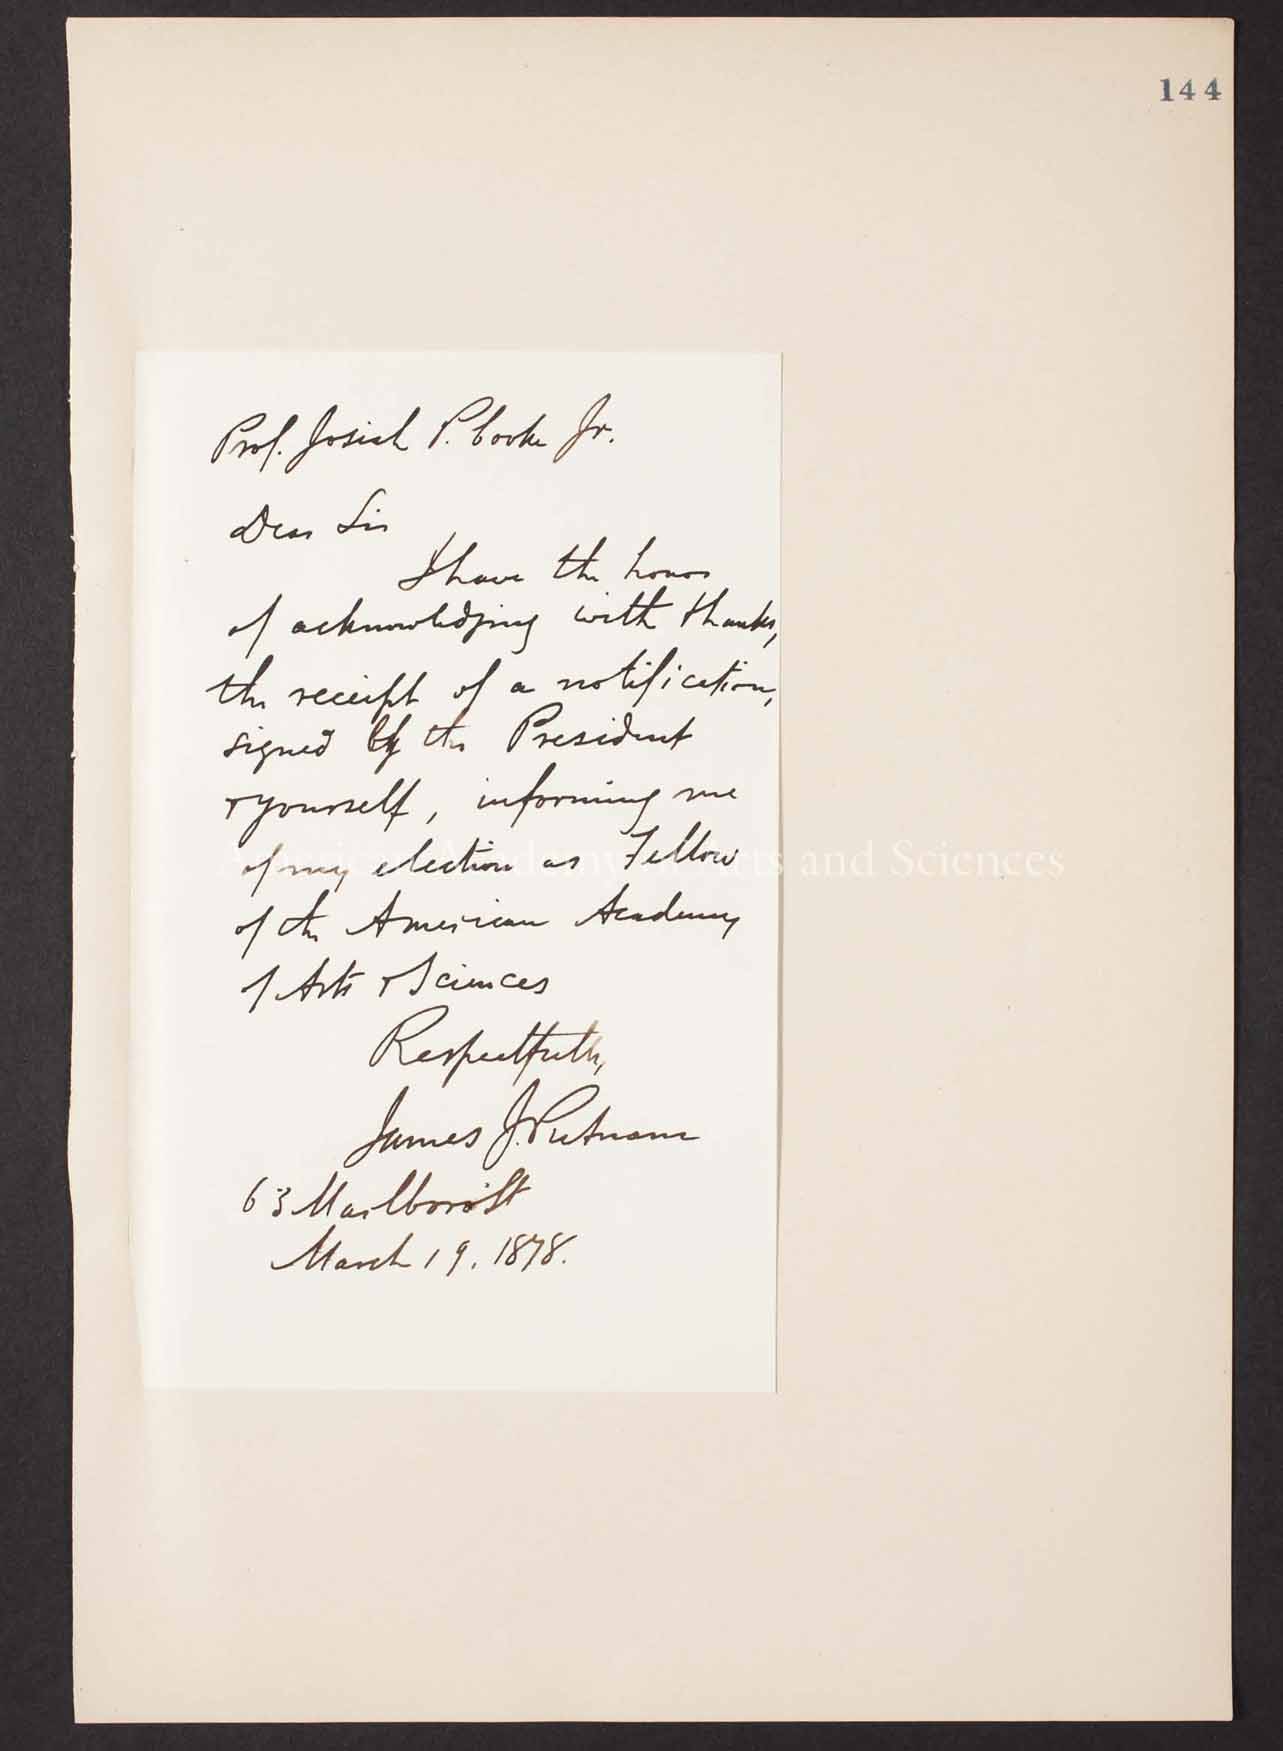 144
Prof. Josiah P. Cooke Jr.
Dear Sir
I have the honor
of acknowledging with thanks,
the receipt of a notification,
signed by the President
& yourself, informing me
of my election as Fellow
American Academy of Arts and Sciences
of the American Academy
of Arts & Sciences
Respectfully,
James J. Putnam
63 Marlboro' St
March 19. 1878.